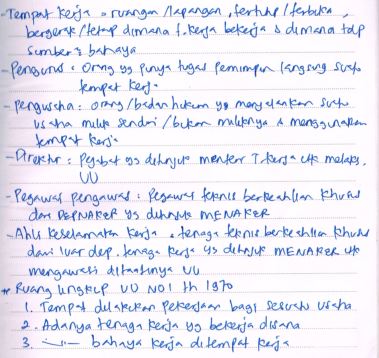 - Tempat kerja = ruangan / lapangan, tertutup / terbuka,
bergerak / tetap dimana t. kerja bekerja & dimana tdp
sumber² bahaya
- Pengurus : Orang yg punya tugas pemimpin langsung suatu
tempat kerja
- Pengusaha : orang / badan hukum yg menjalankan suatu
usaha milik sendiri / bukan miliknya & menggunakan
tempat kerja
- Direktur : Pejabat yg ditunjuk menteri T. Kerja utk melaks.
UU
- Pegawai pengawas : Pegawai teknis berkeahlian khusus
dari DEPNAKER yg ditunjuk MENAKER
- Ahli keselamatan kerja = tenaga teknis berkeahlian khusus
dari luar dep. tenaga kerja yg ditunjuk MENAKER utk
mengawasi ditaatinya UU
* Ruang lingkup UU NO 1 th 1970
1. Tempat dilakukan pekerjaan bagi sesuatu usaha
2. Adanya tenaga kerja yg bekerja disana
3. —"— bahaya kerja ditempat kerja